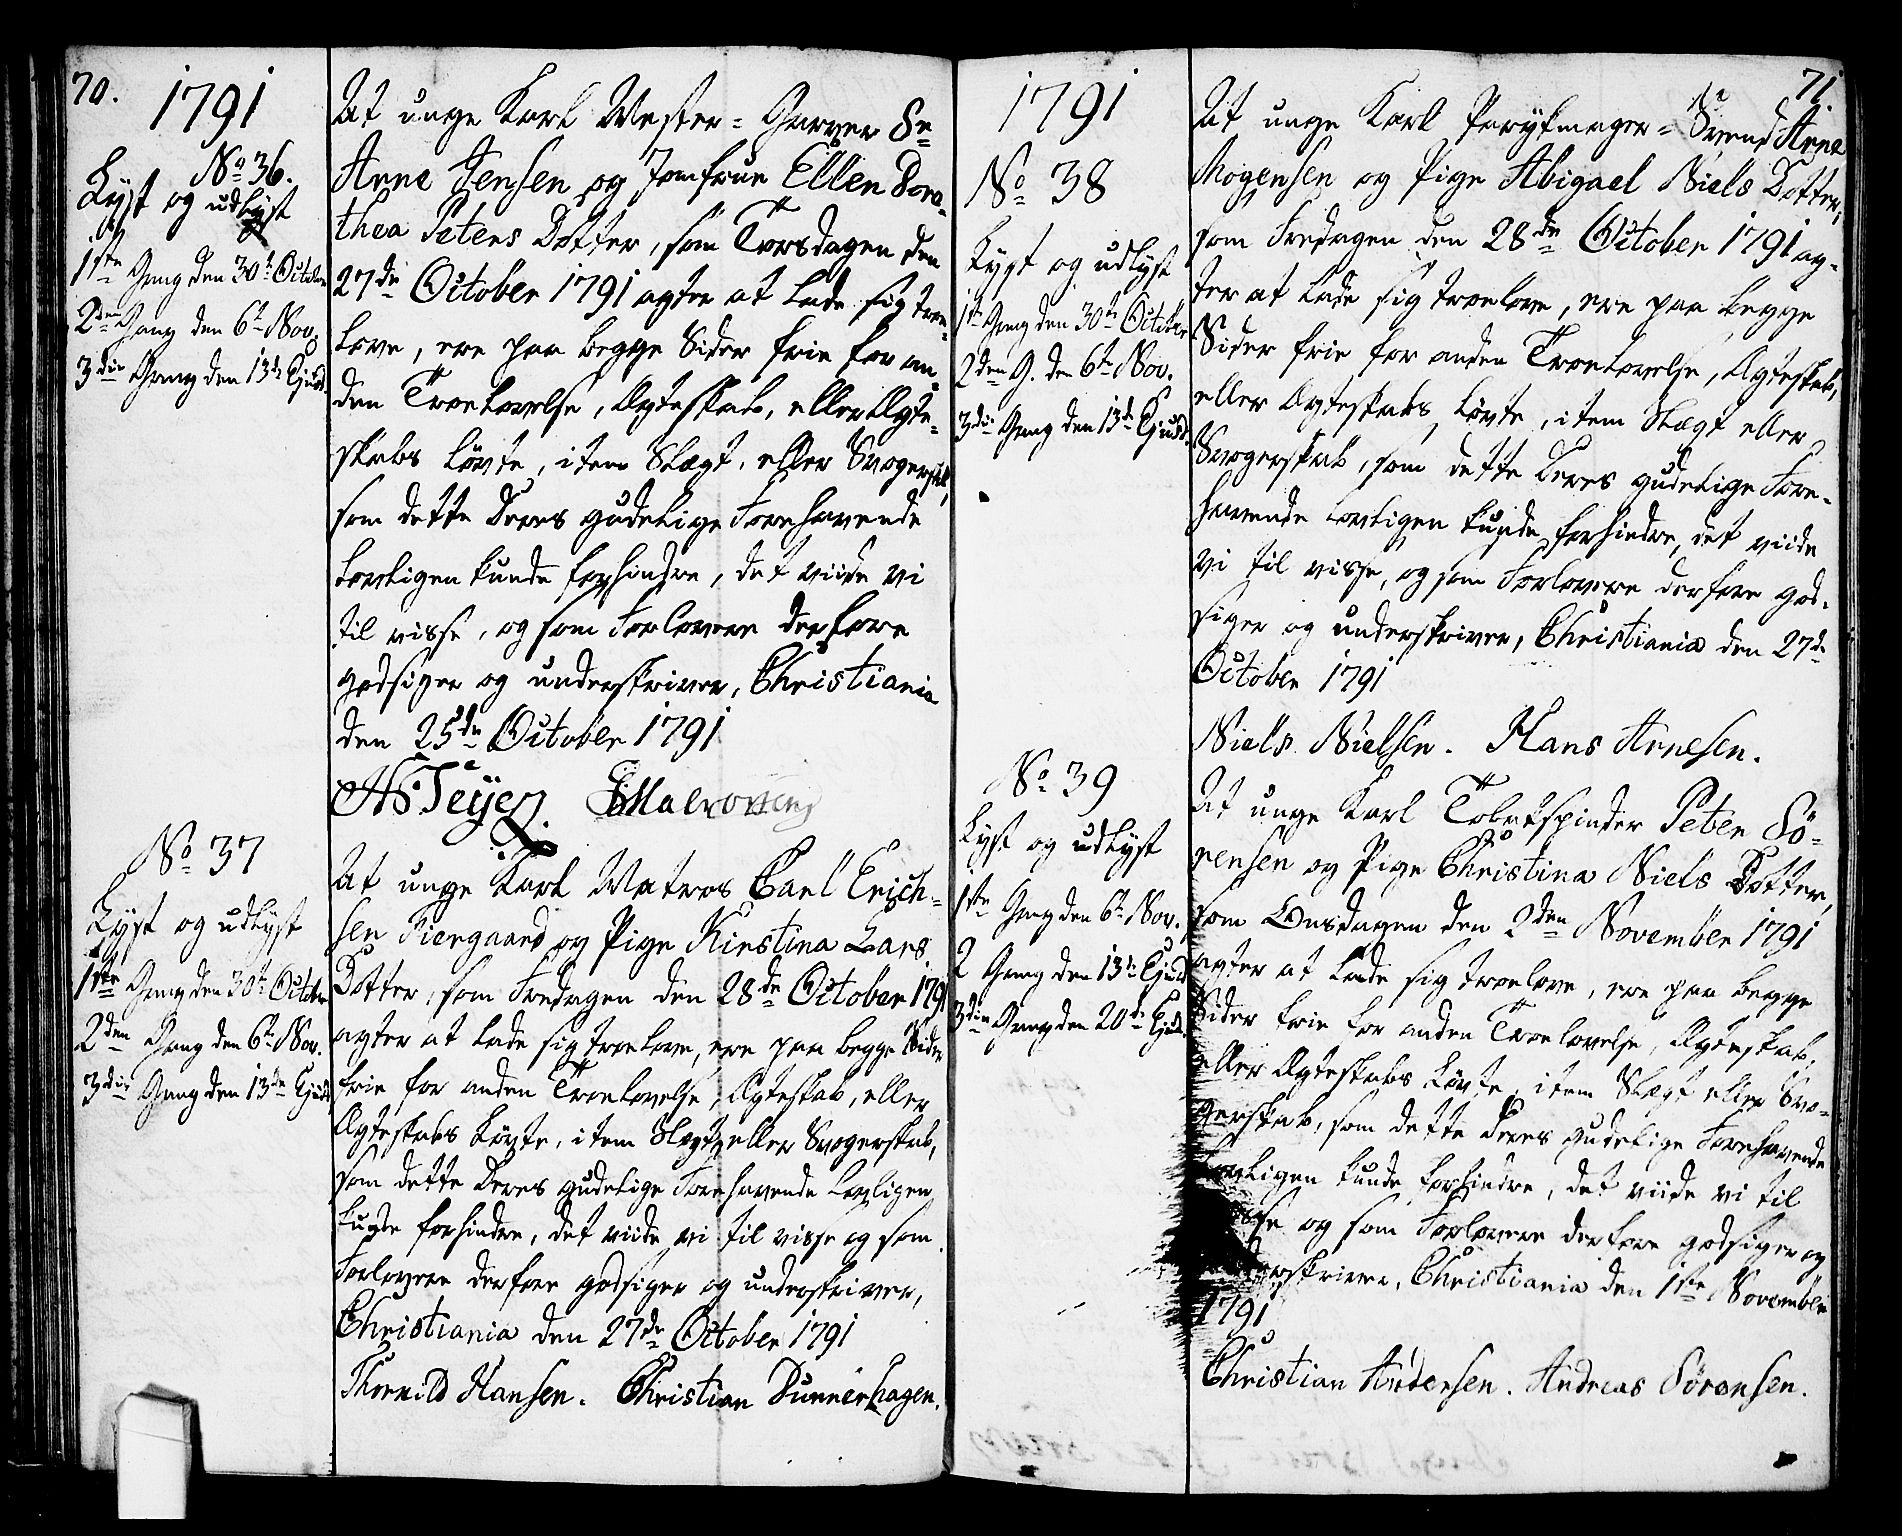 70.
1791
No 36.
Lyst og udlyst
1ste Gang den 30te October
2den Gang den 6te Nov.
3die Gang den 13de Ejusd.
At unge Karl Mester-Garver Sr
Arne Jensen og Jomfrue Ellen Doro-
thea Peters Dotter, som Torsdagen den
27de October 1791 agter at lade sig troe-
love, ere paa begge Sider frie for an-
den Troelovelse, Ægteskab, eller Ægte-
skabs Løvte, item Slægt, eller Svogerskab,
som dette Deres gudelige Forehavende
lovligen kunde forhindre, det viide vi
til visse, og som Forlovere derfore
godsiger og underskriver, Christiania
den 25de October 1791
No 37
Lyst og udlyst
1ste Gang den 30te October
2den Gang den 6te Nov.
3die Gang den 13de Ejusd
At unge Karl Matros Carl Erich-
sen Kiergaard og Pige Kirstina Lars
Dotter, som Fredagen den 28de October 1791
agter at lade sig troelove, ere paa begge Sider
frie for anden Troelovelse, Ægteskab, eller
Ægteskabs Løvte, item Slægt eller Svogerskab,
som dette Deres gudelige Forehavende lovligen
kunde forhindre, det viide vi til visse og som
Forlovere derfore godsiger og underskriver,
Christiania den 27de October 1791
Thorvild Hansen. Christian Dunnerhagen.
71.
1791
No 38
Lyst og udlyst
1ste Gang den 30te October
2den G. den 6te Nov.
3die Gang den 13de Ejusd.
At unge Karl Parykmager-Svend Arne
Mogensen og Pige Abigael Niels Dotter,
som Fredagen den 28de October 1791 ag-
ter at lade sig troelove, ere paa begge
Sider frie for anden Troelovelse, Ægteskab,
eller Ægteskabs Løvte, item Slægt eller
Svogerskab, som dette Deres gudelige Fore-
havende lovligen kunde forhindre, det viide
vi til visse, og som Forlovere derfore god-
siger og underskriver, Christiania den 27de
October 1791
Niels Nielsen. Hans Arnesen.
No 39
Lyst og udlyst
1ste Gang den 6te Nov.
2 Gang den 13de Ejusd
3die Gang den 20de Ejusd.
At unge Karl Tobakspinder Peter Sö-
rensen og Pige Christina Niels Dotter,
som Onsdagen den 2den November 1791
agter at lade sig troelove, ere paa begge
Sider frie for anden Troelovelse, Ægteskab,
eller Ægteskabs Løvte, item Slægt eller Svo-
gerskab, som dette Deres gudelige Forehavende
lovligen kunde forhindre, det viide vi til
visse og som Forlovere derfore godsiger og
underskriver, Christiania den 1ste November
1791
Christian Andersen. Andreas Sörensen.